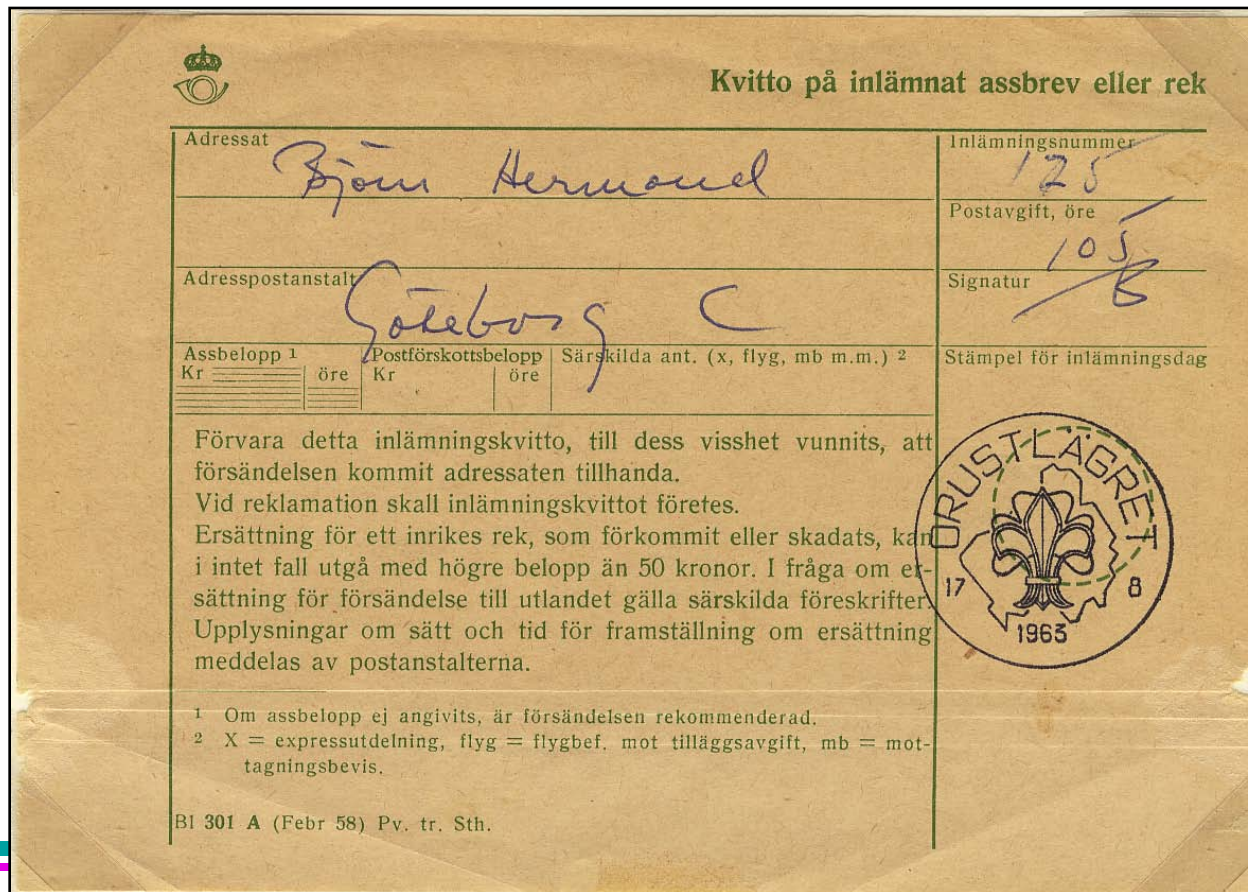 Kvitto på inlämnat assbrev eller rek
Adressat
Björn Hermond
Inlämningsnummer
125
Postavgift, öre
105
Adresspostanstalt
Göteborg C
Signatur
Assbelopp 1
Kr
öre
Postförskottsbelopp
Kr
öre
Särskilda ant. (x, flyg, mb m.m.) 2
Stämpel för inlämningsdag
Förvara detta inlämningskvitto, till dess visshet vunnits, att
försändelsen kommit adressaten tillhanda.
Vid reklamation skall inlämningskvittot företes.
Ersättning för ett inrikes rek, som förkommit eller skadats, kan
i intet fall utgå med högre belopp än 50 kronor. I fråga om er-
sättning för försändelse till utlandet gälla särskilda föreskrifter.
Upplysningar om sätt och tid för framställning om ersättning
meddelas av postanstalterna.
ORUSTLÄGRET
17 8
1963
1 Om assbelopp ej angivits, är försändelsen rekommenderad.
2 X = expressutdelning, flyg = flygbef. mot tilläggsavgift, mb = mot-
tagningsbevis.
Bl 301 A (Febr 58) Pv. tr. Sth.